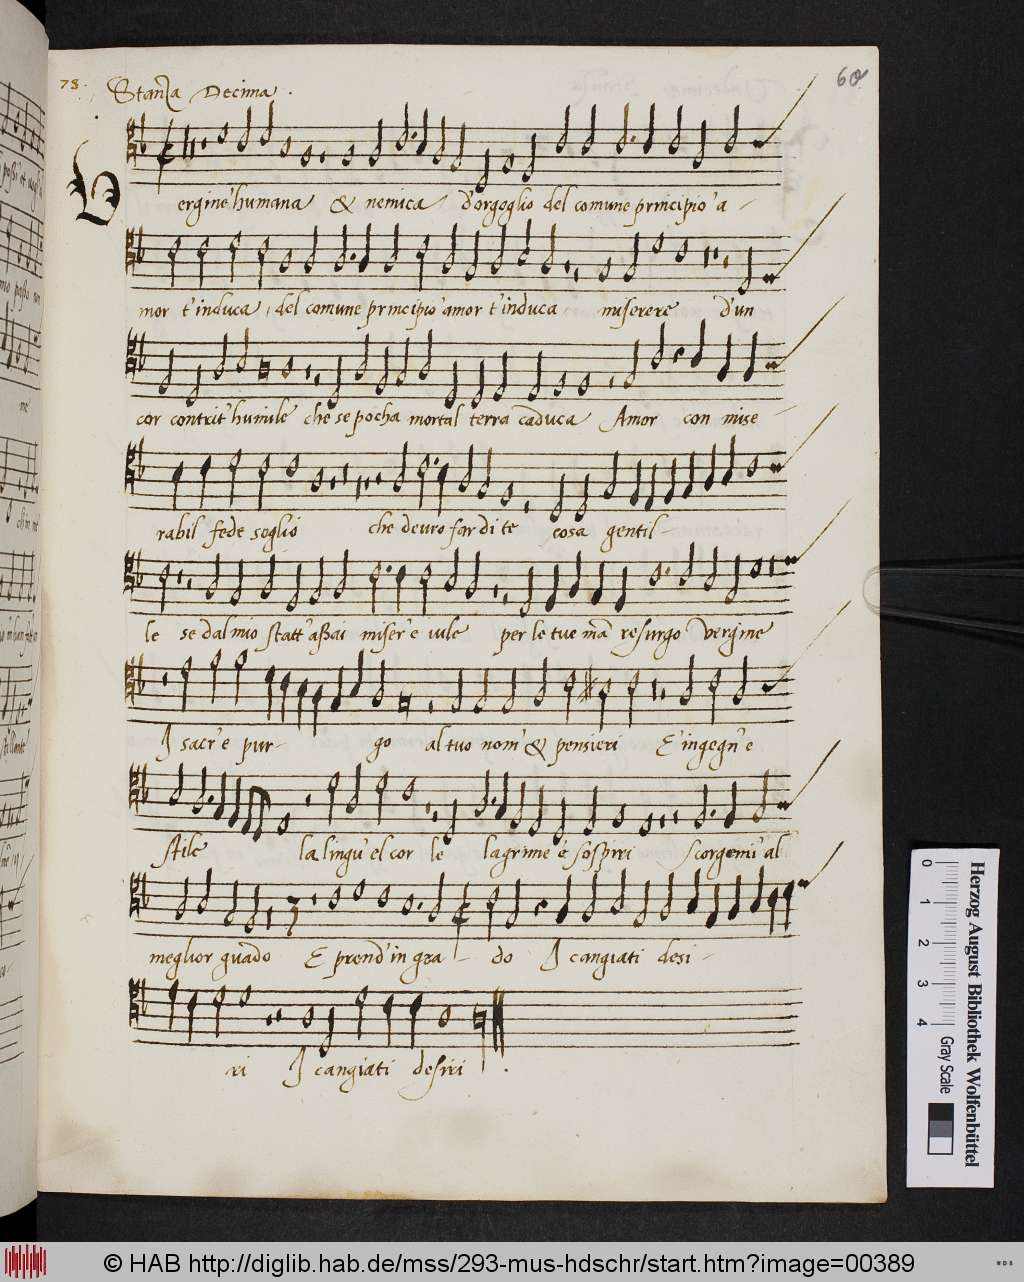 78.
Stanza Decima.
60
Vergine humana & nemica d'orgoglio del comune principio a-
mor t'induca, del comune principio amor t'induca miserere d'un
cor contrit' humile che se pocha mortal terra caduca Amor con mise-
rabil fede soglio che devro far di te cosa gentil-
le se dal mio statt' assai miser' e vile per le tue mã resurgo vergine
I sacr' e pur- go al tuo nom' & pensieri E' ingegn' e
stile la lingu' el cor le lagrime e sospiri scorgemi' al
meglior guado E prend' in gra- do I cangiati desi-
ri I cangiati desiri.
0 1 2 3 4
Gray Scale
Herzog August Bibliothek Wolfenbüttel
© HAB http://diglib.hab.de/mss/293-mus-hdschr/start.htm?image=00389
WDB